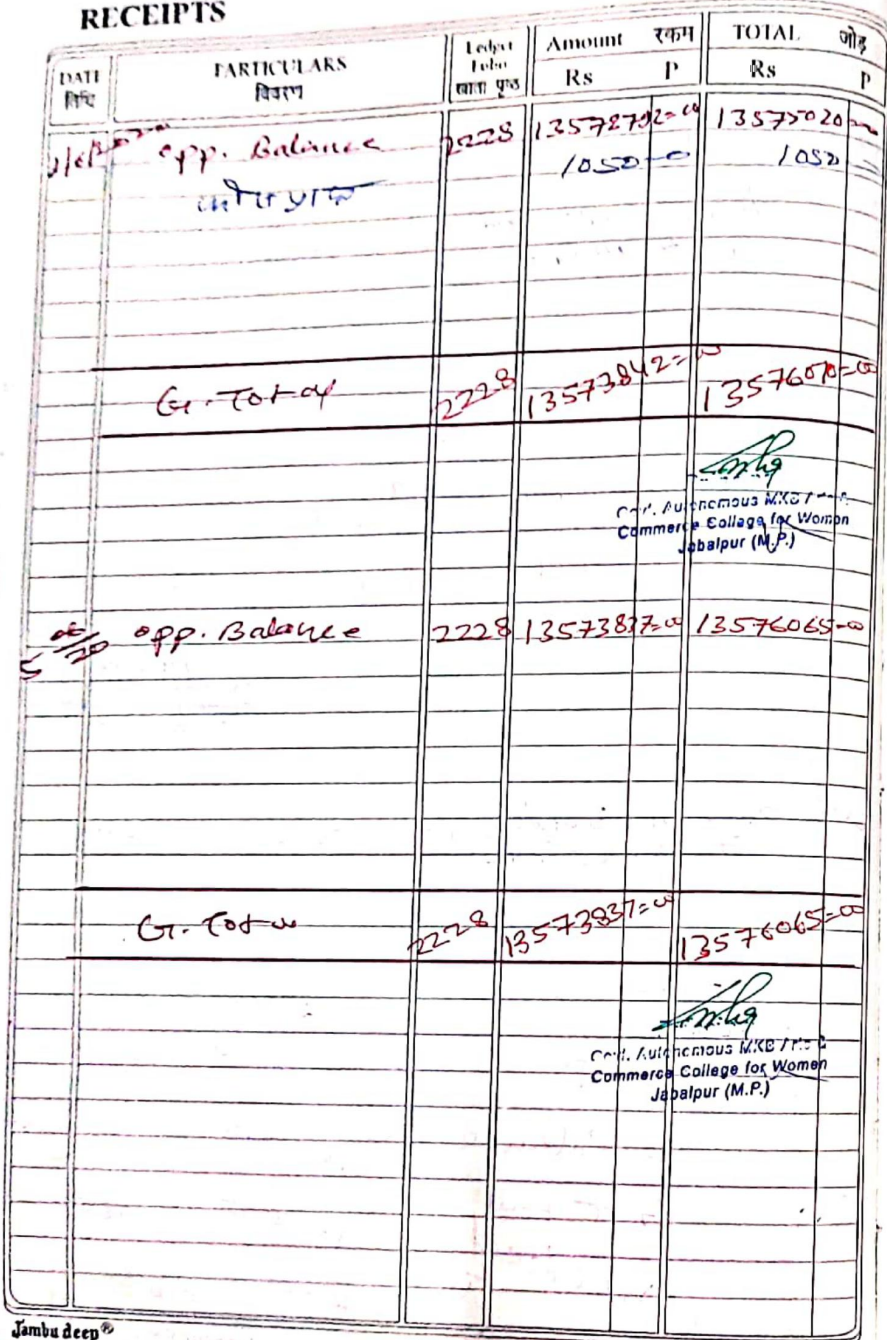 RECEIPTS
DATE तिथि PARTICULARS विवरण Ledger Folio खाता पृष्ठ Amount रकम Rs P TOTAL जोड़ Rs P
opp. Balance 2228 13572792=00 13575020=00
1050-0 1050=
G. Total 2228 13573842=00 13576070=00
Govt. Autonomous MKB Arts &
Commerce Collage for Women
Jabalpur (M.P.)
5 06/20 opp. Balance 2228 13573837=00 13576065=00
G. Total 2228 13573837=00 13576065=00
Govt. Autonomous MKB Arts &
Commerce College for Women
Jabalpur (M.P.)
Jambu deep®